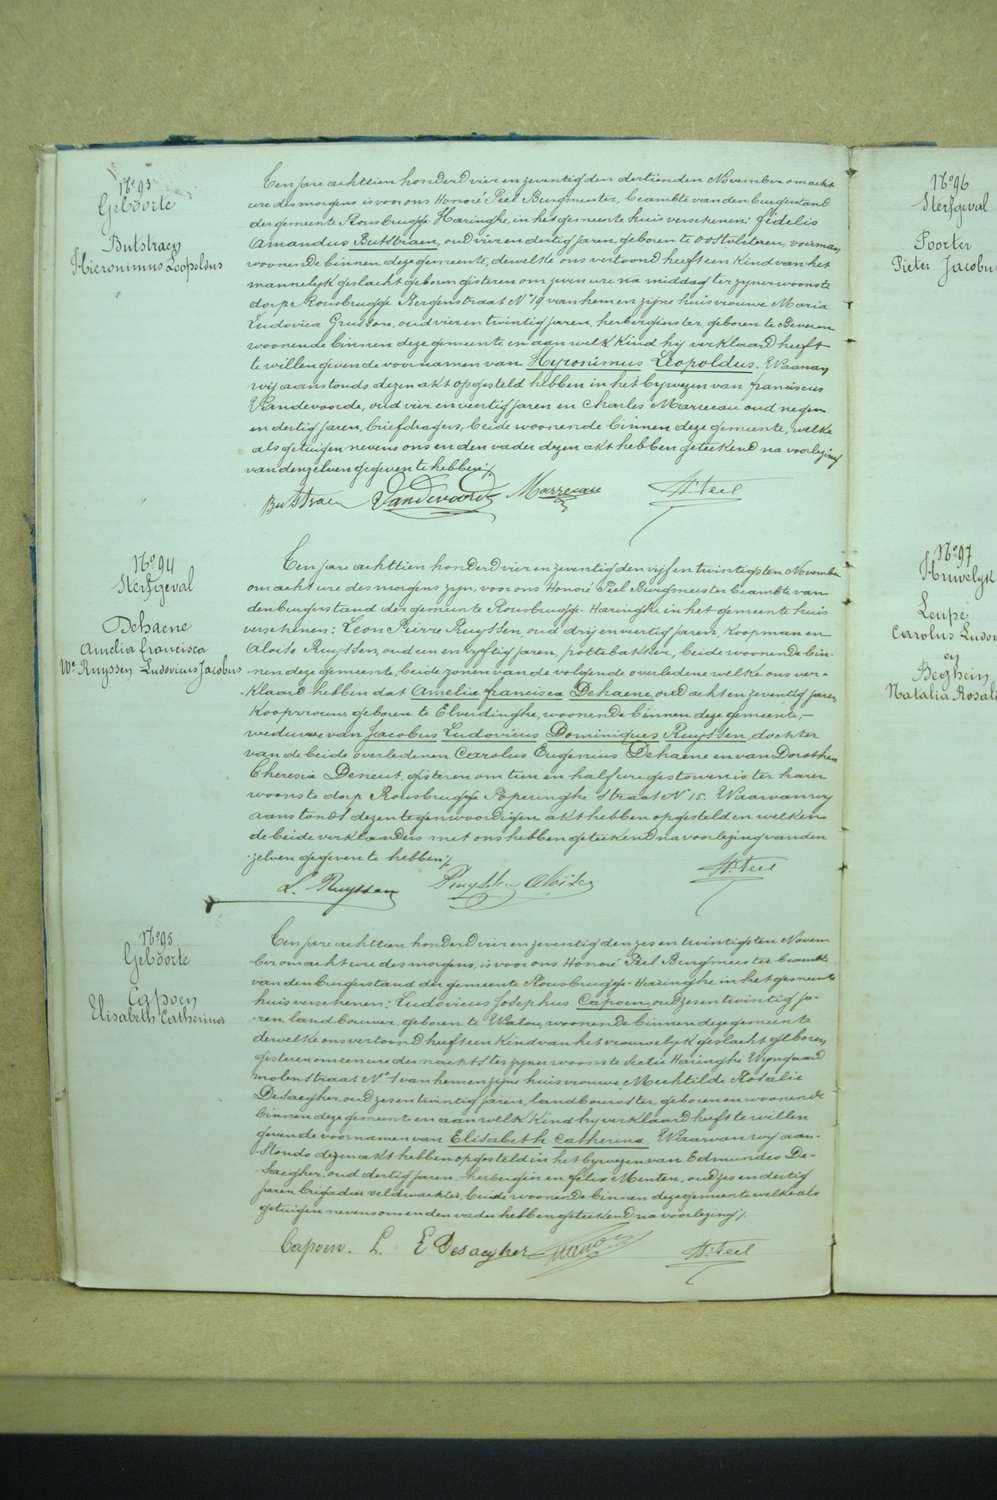 N° 93
Geboorte
Butstraen
Hieronimus Leopoldus
Een jare achttien honderd vier en zeventig den dertienden November om acht
ure des morgens is voor ons Honoré Peel Burgmeester, beambte van den burgerstand
der gemeente Rousbrugge Haringhe, in het gemeente huis verschenen: Fidelis
Amandus Butstraen, oud vier en dertig jaren, geboren te Oostvleteren, voerman
woonende binnen deze gemeente, dewelke ons vertoond heeft een kind van het
mannelyk geslacht geboren gisteren om zeven ure na middag ter zyner woonste
dorpe Rousbrugge Bergenstraat N° 19 van hem en zyne huisvrouwe Maria
Ludovica, oud vier en twintig jaren, herbergierster, geboren te Beveren
woonende binnen deze gemeente en aan welk kind hy verklaard heeft
te willen geven de voornamen van Hyronimus Leopoldus. Waarvan
wij aanstonds dezen akt opgesteld hebben in het bywezen van franciscus
Vandevoorde, oud vier en veertig jaren en Charles Marreeau oud negen
en dertig jaren, briefdragers, beide woonende binnen deze gemeente, welke
als getuigen nevens ons en den vader dezen akt hebben geteekend na voorlezing
van denzelven gegeven te hebben ./.
Butstraen Vandevoorde Marreeau H. Peel
N° 94
Sterfgeval
Dehaene
Amelia francisca
We Ruyssen Ludovicus Jacobus
Een jare achttien honderd vier en zeventig den vyf en twintigsten November
om acht ure des morgens zyn, voor ons Honoré Peel Burgmeester beambte van
den burgerstand der gemeente Rousbrugge-Haringhe in het gemeente huis
verschenen: Leon Pierre Ruyssen, oud drij en veertig jaren, koopman en
Aloïse Ruyssen, oud een en vyftig jaren, pottebakker, beide woonende bin-
nen deze gemeente, beide zonen van de volgende overledene welke ons ver-
klaard hebben dat Amelia francisca Dehaene, oud acht en zeventig jaren,
koopvrouw, geboren te Elverdinghe, woonende binnen deze gemeente,
weduwe van Jacobus Ludovicus Dominiques Ruyssen, dochter
van de beide overledenen Carolus Eugenius Dehaene en van Dorothea
Theresia Deneut, gisteren om tien en half ure gestorven is ter harer
woonste dorp Rousbrugge Poperinghe straat N° 15. Waarvan wy
aanstonds dezen tegenwoordigen akt hebben opgesteld en welken
de beide verklaarders met ons hebben geteekend na voorlezing van den
zelven gegeven te hebben ./.
L. Ruyssen Ruyssen Aloïse H. Peel
N° 95
Geboorte
Capoen
Elisabeth Catherina
Een jare achttien honderd vier en zeventig den zes en twintigsten Novem
ber om acht ure des morgens, is voor ons Honoré Peel Burgmeester beambte
van den burgerstand der gemeente Rousbrugge-Haringhe in het gemeente
huis verschenen: Ludovicus Josephus Capoen, oud zes en twintig ja-
ren, landbouwer, geboren te Watou, woonende binnen deze gemeente
dewelke ons vertoond heeft een kind van het vrouwelyk geslacht geboren
gisteren om een ure des nachts ter zyner woonste sectie Haringhe Wyngaard
molenstraat N° 1 van hem en zyne huisvrouwe Mechtilde Rosalie
Desaegher, oud zes en twintig jaren, landbouwster, geboren en woonende
binnen deze gemeente en aan welk kind hy verklaard heeft te willen
geven de voornamen van Elisabeth Catherina. Waarvan wy aan-
stonds dezen akt hebben opgesteld in het bywezen van Edmundus De-
saegher, oud dertig jaren herbergier en felix Menten, oud zes en dertig
jaren brigadier veldwachter, beide woonende binnen deze gemeente welke als
getuigen nevens ons en den vader hebben geteekend na voorlezing ./.
Capoen. L. E Desaegher H. Peel
N° 96
Sterfgeval
Poorter
Pieter Jacobus
N° 97
Huwelyk
Leupe
Carolus Ludov
en
Beghein
Natalia Rosali